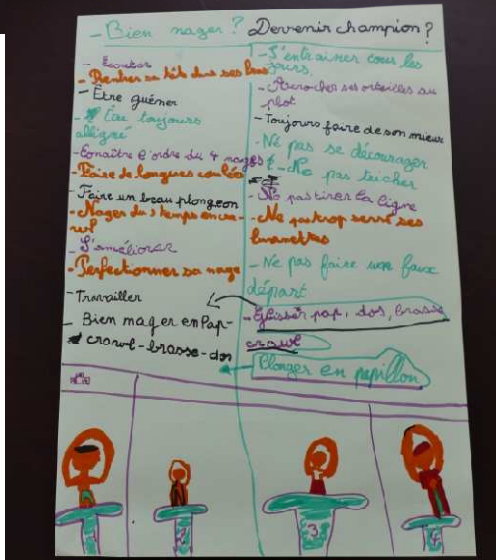 - Bien nager ?
- Ecouter
- Rentrer sa tête dans ses bras
- Etre
- Etre toujours
alligné
- Conaître l'ordre du 4 nages
- Faire de longues coulées
- Faire un beau plongeon
- Nager du 3 temps en cra-
wl
- S'améliorer
- Perfectionner sa nage
- Travailler
- Bien nager en Pap-
crawl-brasse-dos
Devenir champion ?
- S'entrainer tous les
jours.
- Acrocher ses orteilles au
plot
- Toujours faire de son mieux
- Ne pas se décourager
- Ne pas tricher
- Ne pas tirer la ligne
- Ne pas trop serré ses
lunettes
- Ne pas faire un faux
départ
- Glisser pap, dos, brasse
crawl
Plonger en papillon
2
3
4